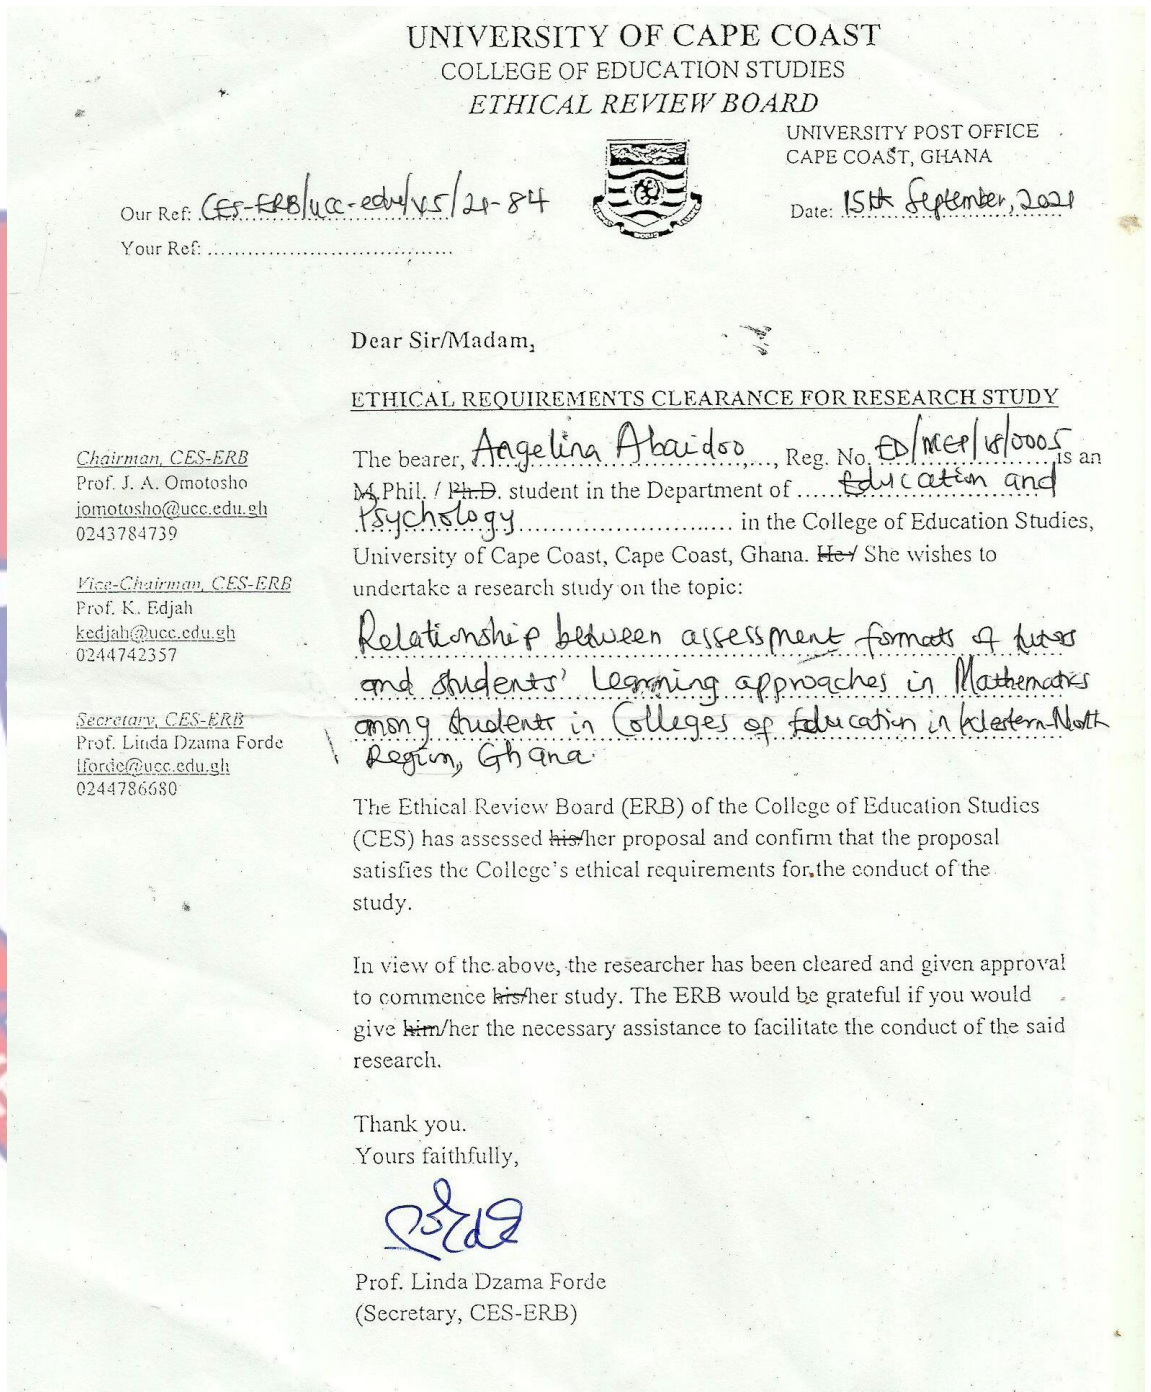 UNIVERSITY OF CAPE COAST
COLLEGE OF EDUCATION STUDIES
ETHICAL REVIEW BOARD
UNIVERSITY POST OFFICE
CAPE COAST, GHANA
Our Ref: CES-ERB/ucc-edu/V5/21-84
Date: 15th September, 2021
Your Ref: ....................................
Dear Sir/Madam,
ETHICAL REQUIREMENTS CLEARANCE FOR RESEARCH STUDY
Chairman, CES-ERB
Prof. J. A. Omotosho
jomotosho@ucc.edu.gh
0243784739
Vice-Chairman, CES-ERB
Prof. K. Edjah
kedjah@ucc.edu.gh
0244742357
Secretary, CES-ERB
Prof. Linda Dzama Forde
lforde@ucc.edu.gh
0244786680
The bearer, Angelina Abaidoo, Reg. No. ED/MEP/18/0005 is an
M.Phil. / Ph.D. student in the Department of Education and
Psychology in the College of Education Studies,
University of Cape Coast, Cape Coast, Ghana. He/ She wishes to
undertake a research study on the topic:
Relationship between assessment formats of tutors
and students' learning approaches in Mathematics
among students in Colleges of Education in Western-North
Region, Ghana.
The Ethical Review Board (ERB) of the College of Education Studies
(CES) has assessed his/her proposal and confirm that the proposal
satisfies the College's ethical requirements for the conduct of the
study.
In view of the above, the researcher has been cleared and given approval
to commence his/her study. The ERB would be grateful if you would
give him/her the necessary assistance to facilitate the conduct of the said
research.
Thank you.
Yours faithfully,
Prof. Linda Dzama Forde
(Secretary, CES-ERB)